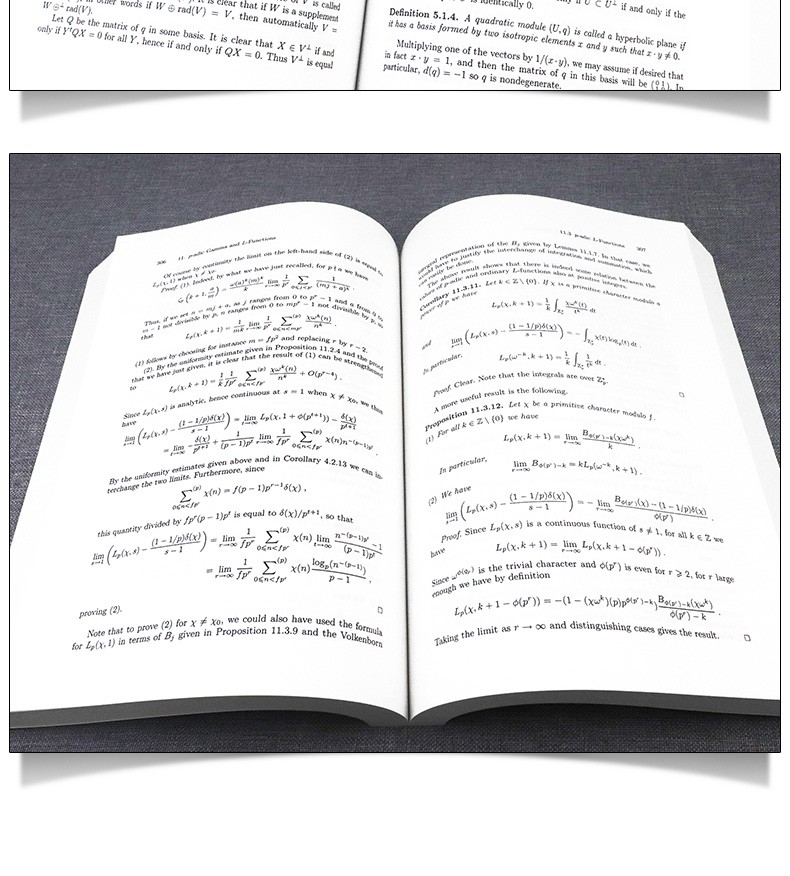 V is called
in other words if W ⊕ rad(V) = V, then automatically V =
W ⊕⊥ rad(V).
Let Q be the matrix of q in some basis. It is clear that X ∈ V⊥ if and
only if Y^tQX = 0 for all Y, hence if and only if QX = 0. Thus V⊥ is equal
is identically 0.
if U ⊂ U⊥ if and only if the
Definition 5.1.4. A quadratic module (U, q) is called a hyperbolic plane if
it has a basis formed by two isotropic elements x and y such that x · y ≠ 0.
Multiplying one of the vectors by 1/(x·y), we may assume if desired that
in fact x · y = 1, and then the matrix of q in this basis will be (0 1
particular, d(q) = −1 so q is nondegenerate.
306 11. p-adic Gamma and L-Functions
Of course by continuity the limit on the left-hand side of (2) is equal to
L_p(χ, 1) when χ ≠ χ_0.
Proof. (1). Indeed, by what we have just recalled, for p ∤ a we have
Thus, if we set n = mj + a, as j ranges from 0 to p^r − 1 and a from 0 to
m − 1 not divisible by p, n ranges from 0 to mp^r − 1 not divisible by p, so
that
L_p(χ, k + 1) = 1/(mk) lim_{r→∞} 1/p^r ∑^{(p)}_{0≤n<mp^r} χω^k(n)/n^k .
(1) follows by choosing for instance m = fp^2 and replacing r by r − 2.
(2). By the uniformity estimate given in Proposition 11.2.4 and the proof
that we have just given, it is clear that the result of (1) can be strengthened
to
L_p(χ, k + 1) = 1/k 1/(fp^r) ∑^{(p)}_{0≤n<fp^r} χω^k(n)/n^k + O(p^{r−4}) .
Since L_p(χ, s) is analytic, hence continuous at s = 1 when χ ≠ χ_0, we thus
have
lim_{s→1} (L_p(χ, s) − (1 − 1/p)δ(χ)/(s − 1)) = lim_{t→∞} L_p(χ, 1 + φ(p^{t+1})) − δ(χ)/p^{t+1}
= lim_{t→∞} − δ(χ)/p^{t+1} + 1/((p−1)p^t) lim_{r→∞} 1/(fp^r) ∑^{(p)}_{0≤n<fp^r} χ(n)n^{−(p−1)p^t} .
By the uniformity estimates given above and in Corollary 4.2.13 we can in-
terchange the two limits. Furthermore, since
∑^{(p)}_{0≤n<fp^r} χ(n) = f(p − 1)p^{r−1}δ(χ) ,
this quantity divided by fp^r(p − 1)p^t is equal to δ(χ)/p^{t+1}, so that
lim_{s→1} (L_p(χ, s) − (1 − 1/p)δ(χ)/(s − 1)) = lim_{r→∞} 1/(fp^r) ∑^{(p)}_{0≤n<fp^r} χ(n) lim_{t→∞} (n^{−(p−1)p^t} − 1)/((p − 1)p^t)
= lim_{r→∞} 1/(fp^r) ∑^{(p)}_{0≤n<fp^r} χ(n) log_p(n^{−(p−1)})/(p − 1) ,
proving (2). □
Note that to prove (2) for χ ≠ χ_0, we could also have used the formula
for L_p(χ, 1) in terms of B_j given in Proposition 11.3.9 and the Volkenborn
11.3 p-adic L-Functions 307
integral representation of the B_j given by Lemma 11.1.7. In that case, we
would have to justify the interchange of integration and summation, which
can easily be done.
The above result shows that there is indeed some relation between the
values of p-adic and ordinary L-functions also at positive integers.
Corollary 11.3.11. Let k ∈ Z \ {0}. If χ is a primitive character modulo a
power of p we have
L_p(χ, k + 1) = 1/k ∫_{Z_p^*} χω^k(t)/t^k dt ,
and
lim_{s→1} (L_p(χ, s) − (1 − 1/p)δ(χ)/(s − 1)) = − ∫_{Z_p^*} χ(t) log_p(t) dt .
In particular,
L_p(ω^{−k}, k + 1) = 1/k ∫_{Z_p^*} 1/t^k dt .
Proof. Clear. Note that the integrals are over Z_p^*. □
A more useful result is the following.
Proposition 11.3.12. Let χ be a primitive character modulo f.
(1) For all k ∈ Z \ {0} we have
L_p(χ, k + 1) = lim_{r→∞} B_{φ(p^r)−k}(χω^k)/k .
In particular,
lim_{r→∞} B_{φ(p^r)−k} = kL_p(ω^{−k}, k + 1) .
(2) We have
lim_{s→1} (L_p(χ, s) − (1 − 1/p)δ(χ)/(s − 1)) = − lim_{r→∞} (B_{φ(p^r)}(χ) − (1 − 1/p)δ(χ))/φ(p^r) .
Proof. Since L_p(χ, s) is a continuous function of s ≠ 1, for all k ∈ Z we
have
L_p(χ, k + 1) = lim_{r→∞} L_p(χ, k + 1 − φ(p^r)) .
Since ω^{φ(q_p)} is the trivial character and φ(p^r) is even for r ⩾ 2, for r large
enough we have by definition
L_p(χ, k + 1 − φ(p^r)) = −(1 − (χω^k)(p)p^{φ(p^r)−k−1}) B_{φ(p^r)−k}(χω^k)/(φ(p^r) − k) .
Taking the limit as r → ∞ and distinguishing cases gives the result. □